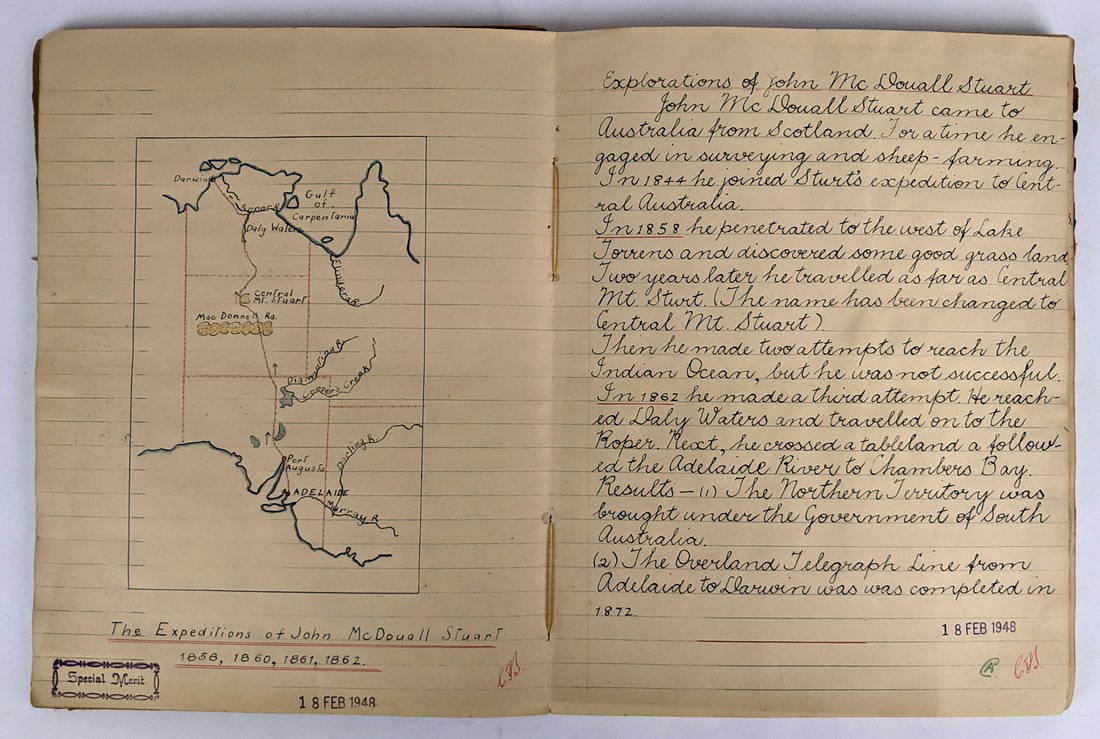 Darwin
Gulf
of
Carpentaria
Roper R.
Daly Waters
Flinders R.
Central
Mt. Stuart
Mac Donnell Ra.
Diamantina R.
Cooper's Creek
Darling R.
Port
Augusta
ADELAIDE
Murray R.
The Expeditions of John McDouall Stuart
1858, 1860, 1861, 1862.
Special Merit
18 FEB 1948
Explorations of John Mc Douall Stuart
John Mc Douall Stuart came to
Australia from Scotland. For a time he en-
gaged in surveying and sheep-farming.
In 1844 he joined Sturt's expedition to Cent-
ral Australia.
In 1858 he penetrated to the west of Lake
Torrens and discovered some good grass land
Two years later he travelled as far as Central
Mt. Sturt. (The name has been changed to
Central Mt. Stuart)
Then he made two attempts to reach the
Indian Ocean, but he was not successful.
In 1862 he made a third attempt. He reach-
ed Daly Waters and travelled on to the
Roper. Next, he crossed a tableland a follow-
ed the Adelaide River to Chambers Bay.
Results - (1) The Northern Territory was
brought under the Government of South
Australia.
(2) The Overland Telegraph Line from
Adelaide to Darwin was was completed in
1872.
18 FEB 1948